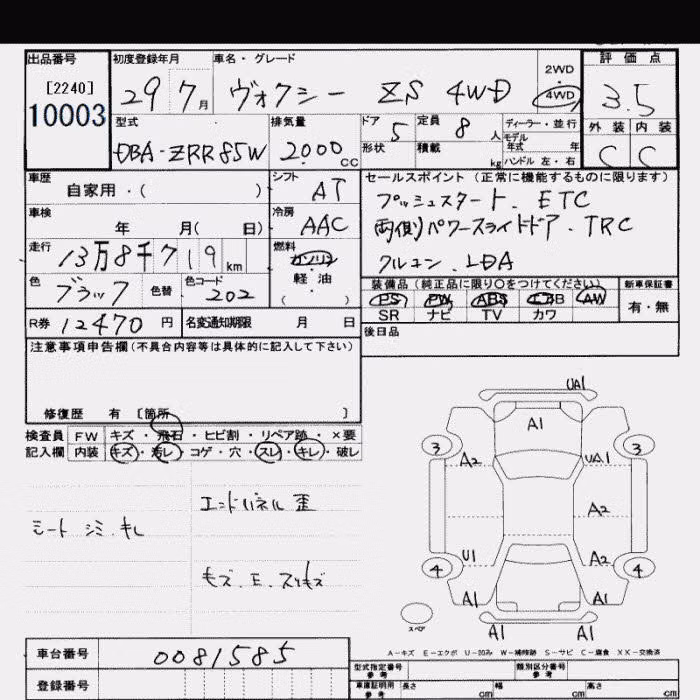 出品番号
[2240]
10003
初度登録年月
29 7月
車名・グレード
ヴォクシー ZS 4WD
2WD
4WD
評価点
3.5
外装 内装
C C
型式
DBA-ZRR85W
排気量
2000 cc
ドア 5
形状
定員 8 人
積載 kg
ディーラー・並行
モデル年式 年
ハンドル 左・右
車歴
自家用・( )
シフト
AT
車検
年 月( 日)
冷房
AAC
走行
13万8千719km
燃料
ガソリン
軽油
( )
色
ブラック
色替
色コード
202
R券 12470 円
名変通知期限 月 日
セールスポイント (正常に機能するものに限ります)
プッシュスタート. ETC
両側パワースライドドア. TRC
クルコン. LDA
装備品 (純正品に限り〇をつけてください)
PS PW ABS エアB AW
SR ナビ TV カワ
新車保証書
有・無
後日品
注意事項申告欄 (不具合内容等は具体的に記入して下さい)
修復歴 有 [箇所 ]
検査員
記入欄
FW キズ・飛石・ヒビ割・リペア跡・×要
内装 キズ・汚レ・コゲ・穴・スレ・キレ・破レ
エンドパネル 歪
シート シミ.キレ
キズ.E.スリキズ
UA1
A1
3 3
A2 UA1
A2
U1 A2
4 4
A1 A1
スペア
A1 A1
A-キズ E-エクボ U-凹み W-補修跡 S-サビ C-腐食 XX-交換済
車台番号
0081585
登録番号
型式指定番号
参考
類別区分番号
参考
車庫証明用
参考
長さ cm 幅 cm 高さ cm